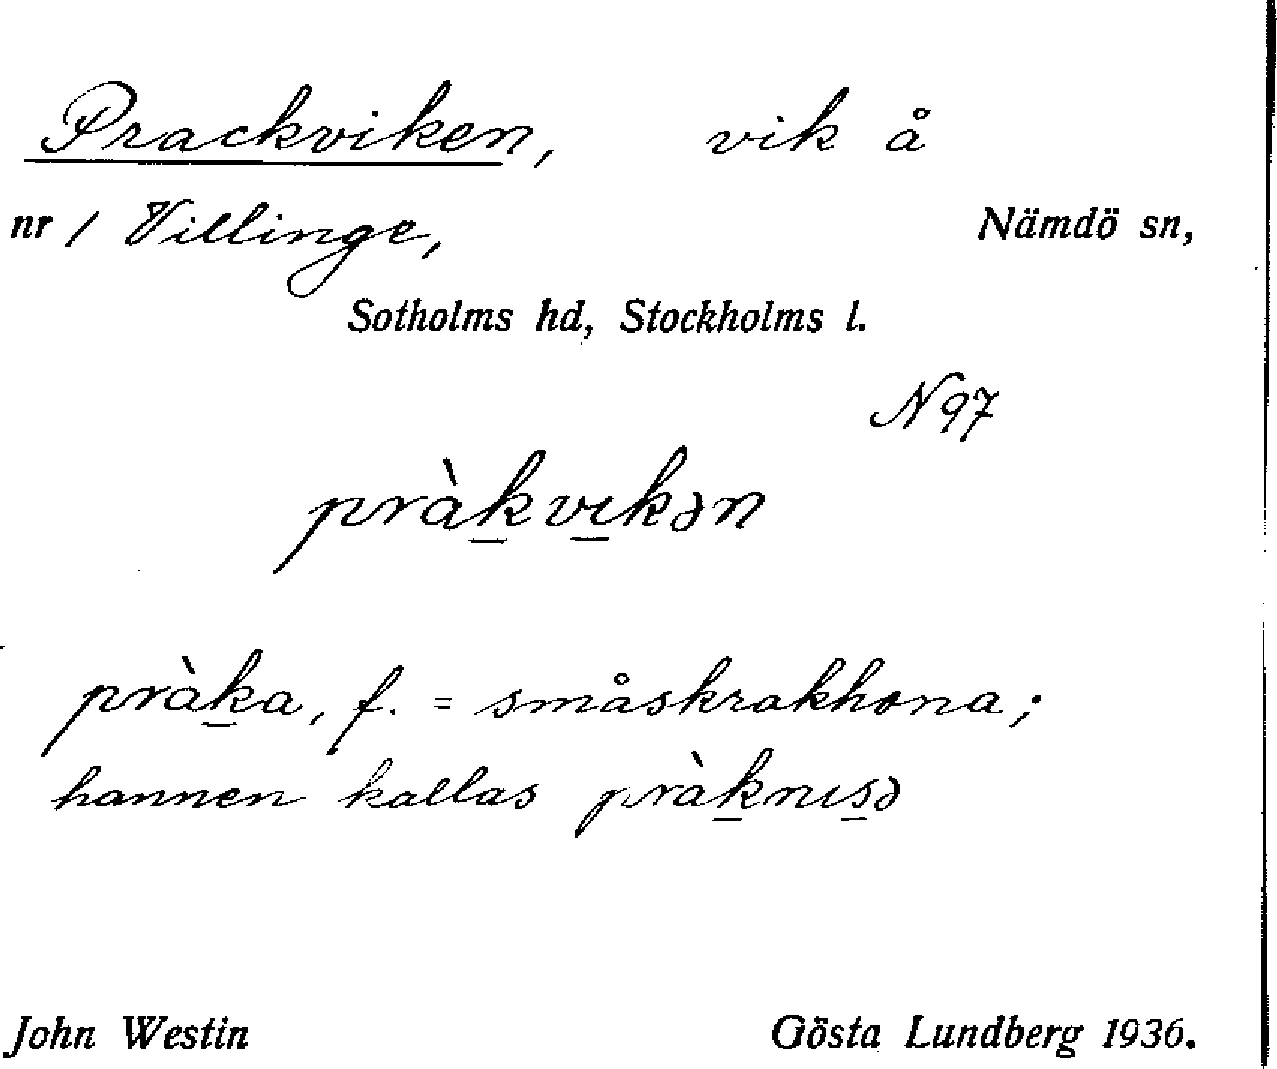 Prackviken, vik å
nr 1 Villinge, Nämdö sn,
Sotholms hd, Stockholms l.
N 97
pràk̲vı̲kən
pràk̲a, f. = småskrakhona;
hannen kallas pràk̲nıs̲ə
John Westin Gösta Lundberg 1936.